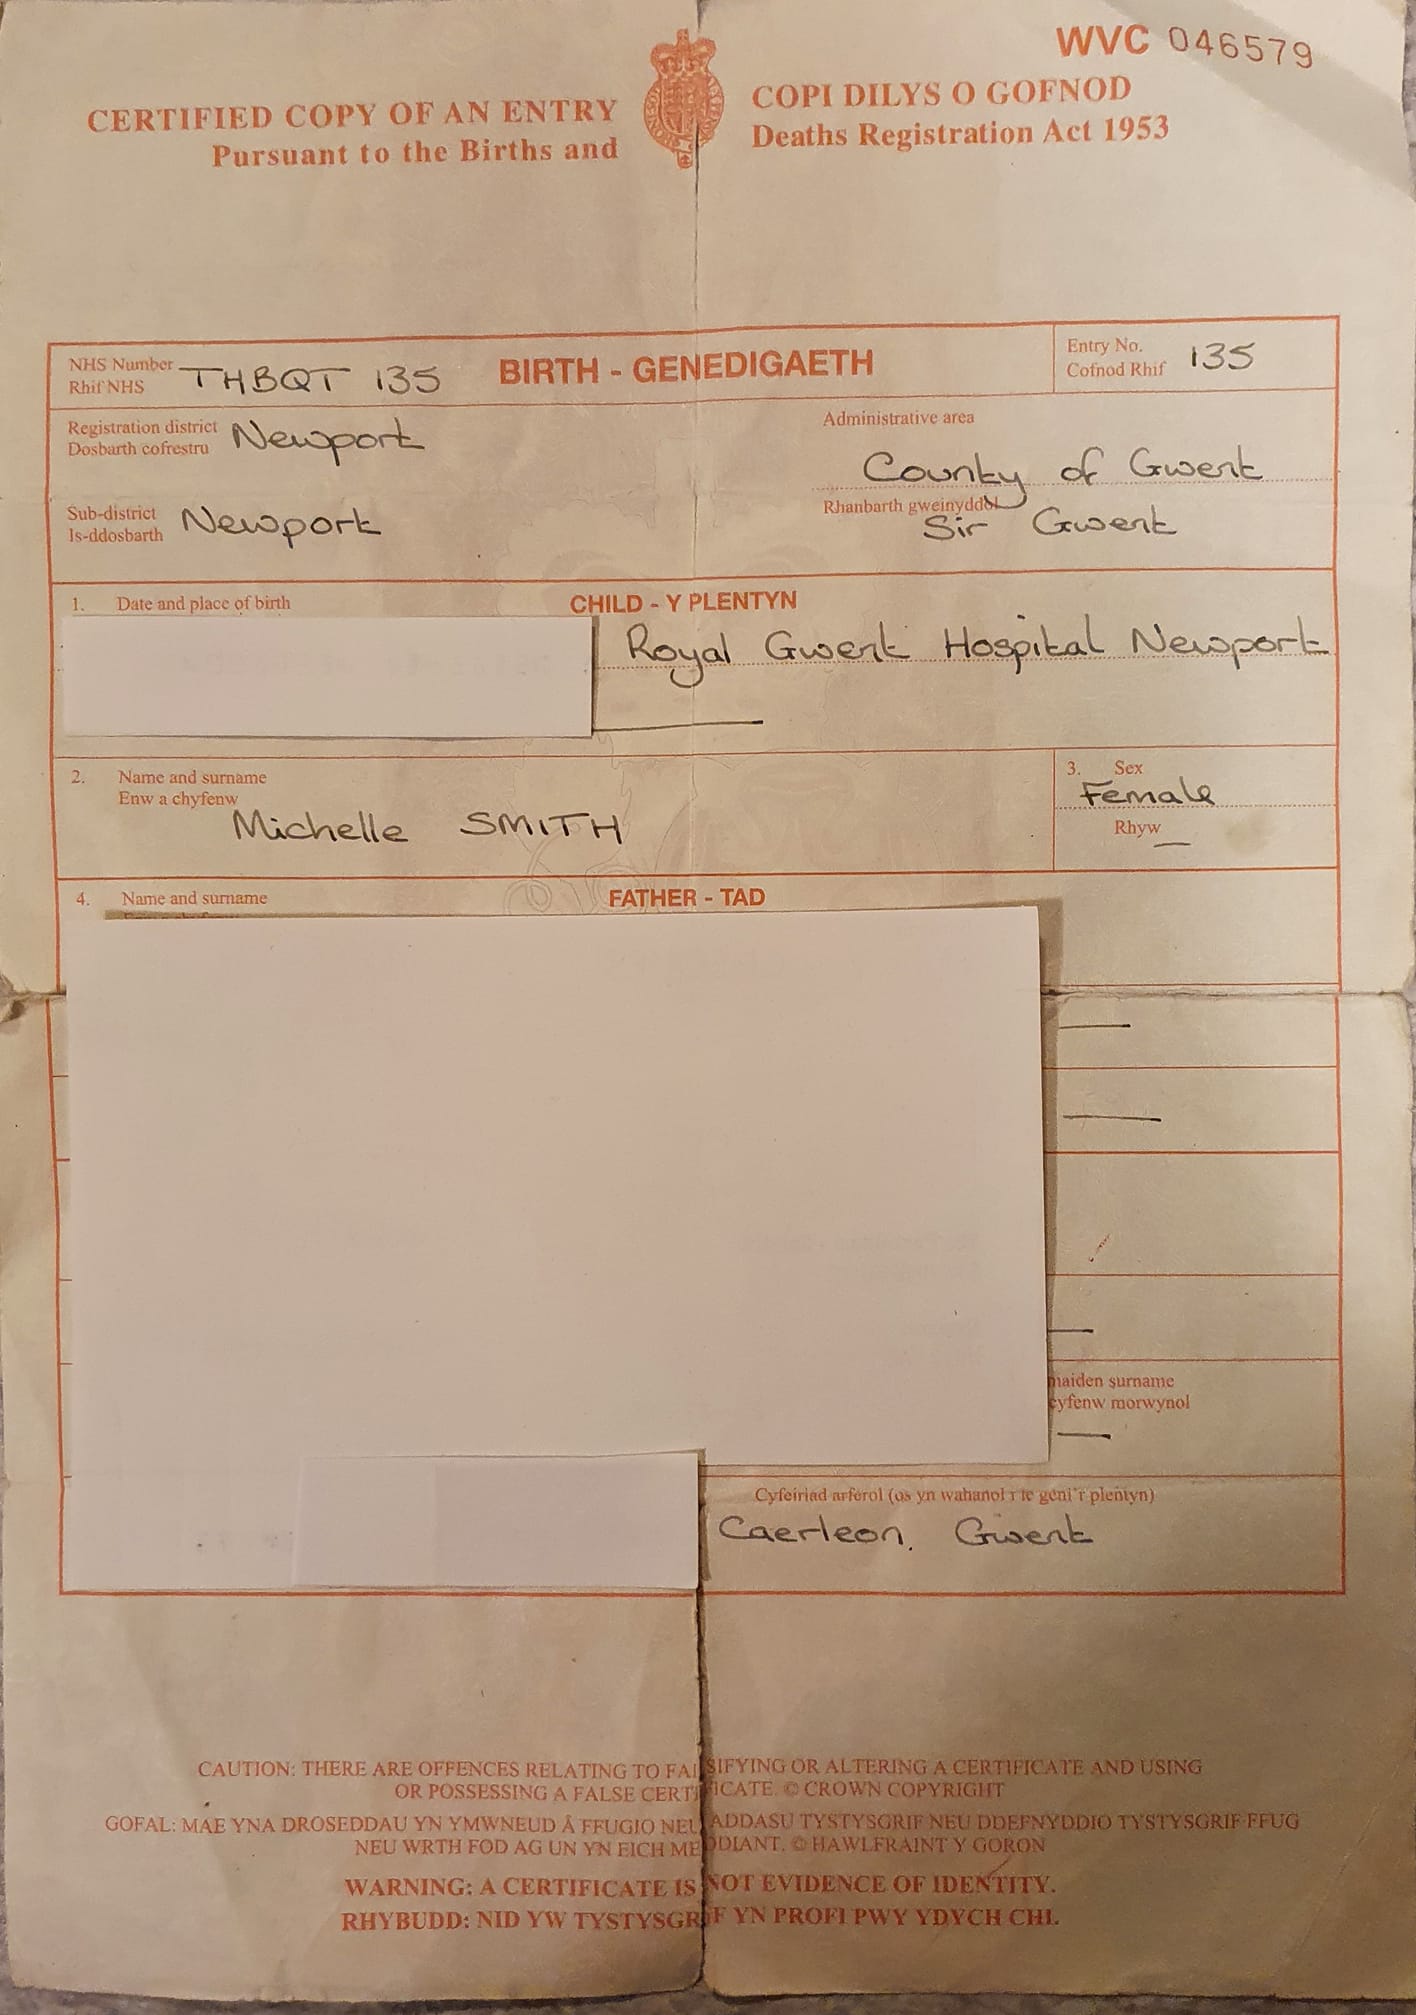 WVC 046579
CERTIFIED COPY OF AN ENTRY
COPI DILYS O GOFNOD
Pursuant to the Births and
Deaths Registration Act 1953
NHS Number
Rhif NHS
THBQT 135
BIRTH - GENEDIGAETH
Entry No.
Cofnod Rhif
135
Registration district
Dosbarth cofrestru
Newport
Administrative area
County of Gwent
Sub-district
Is-ddosbarth
Newport
Rhanbarth gweinyddol
Sir Gwent
1. Date and place of birth
CHILD - Y PLENTYN
Royal Gwent Hospital Newport
2. Name and surname
Enw a chyfenw
Michelle SMITH
3. Sex
Female
Rhyw
4. Name and surname
FATHER - TAD
maiden surname
cyfenw morwynol
Cyfeiriad arferol (os yn wahanol i le geni'r plentyn)
Caerleon, Gwent
CAUTION: THERE ARE OFFENCES RELATING TO FALSIFYING OR ALTERING A CERTIFICATE AND USING
OR POSSESSING A FALSE CERTIFICATE. © CROWN COPYRIGHT
GOFAL: MAE YNA DROSEDDAU YN YMWNEUD Â FFUGIO NEU ADDASU TYSTYSGRIF NEU DDEFNYDDIO TYSTYSGRIF FFUG
NEU WRTH FOD AG UN YN EICH MEDDIANT. © HAWLFRAINT Y GORON
WARNING: A CERTIFICATE IS NOT EVIDENCE OF IDENTITY.
RHYBUDD: NID YW TYSTYSGRIF YN PROFI PWY YDYCH CHI.